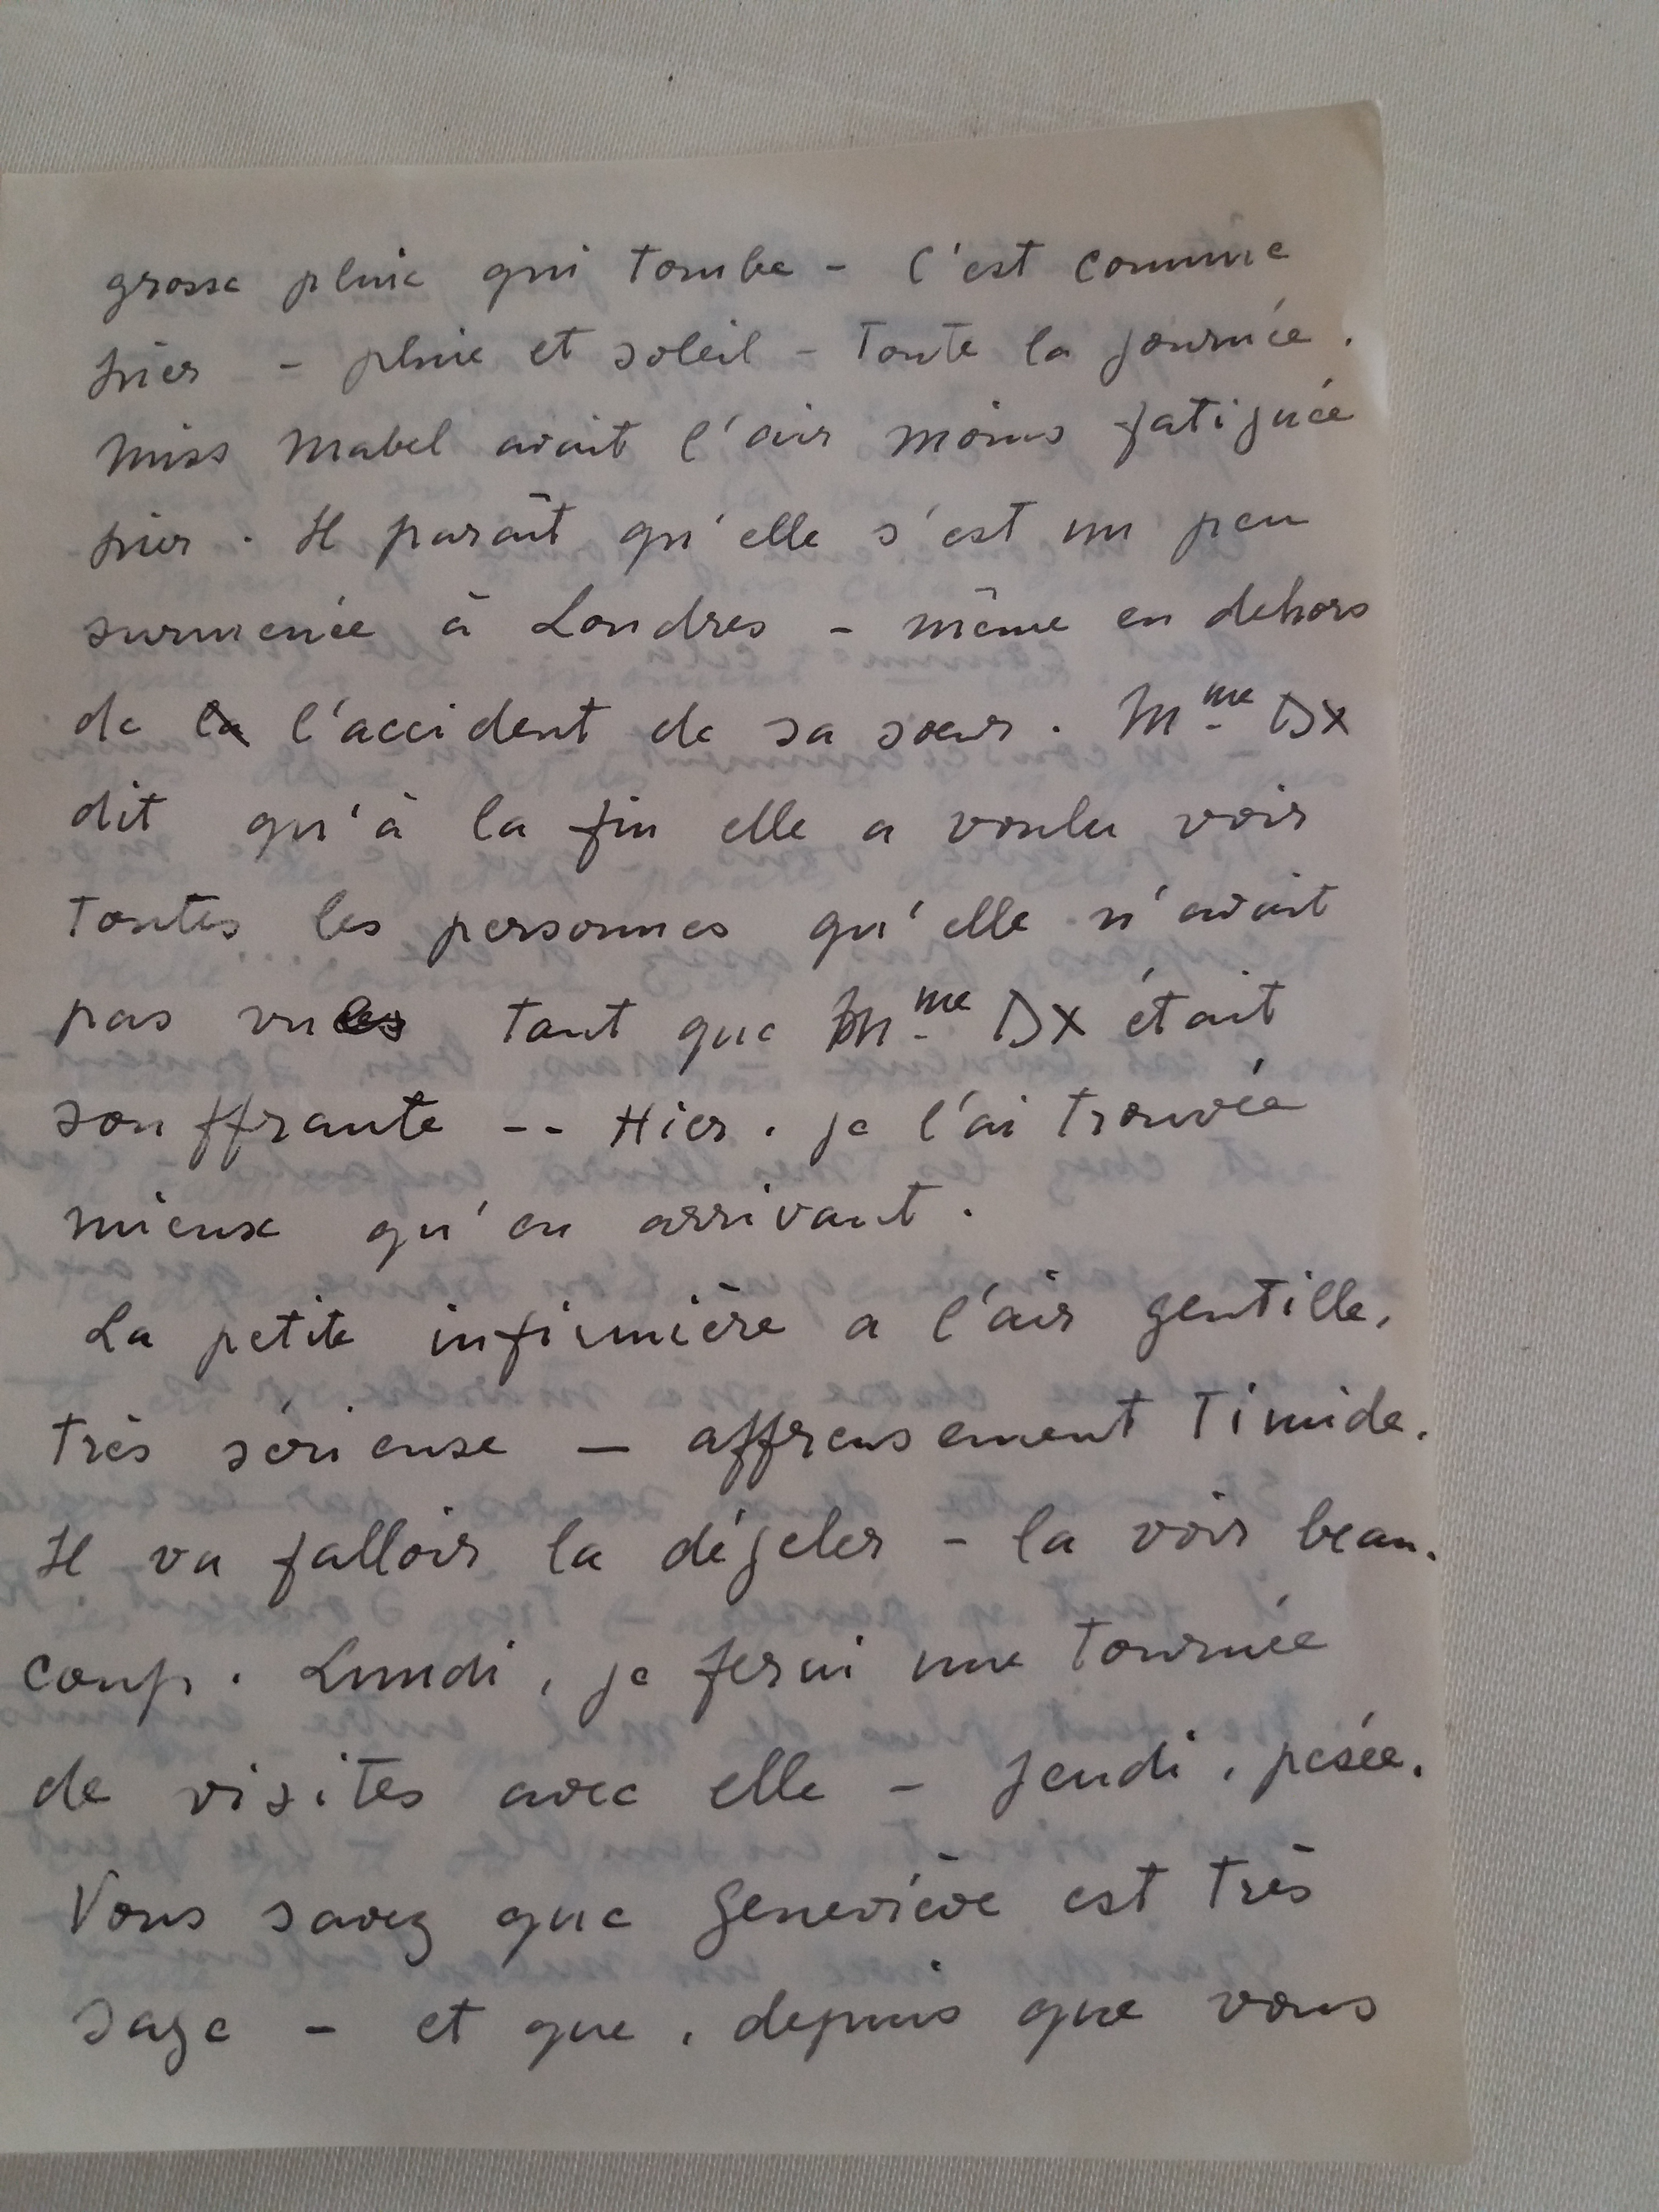 grosse pluie qui tombe - C'est comme
hier - pluie et soleil - toute la journée.
Miss Mabel avait l'air moins fatiguée
hier. Il paraît qu'elle s'est un peu
surmenée à Londres - même en dehors
de la l'accident de sa soeur. Mme Dx
dit qu'à la fin elle a voulu voir
toutes les personnes qu'elle n'avait
pas vues tant que Mme Dx était
souffrante -- Hier. je l'ai trouvée
mieux qu'en arrivant.
La petite infirmière a l'air gentille,
très sérieuse — affreusement timide.
Il va falloir la dégeler - la voir beau-
coup. Lundi, je ferai une tournée
de visites avec elle - Jeudi, pesée.
Vous savez que Geneviève est très
sage - et que, depuis que vous